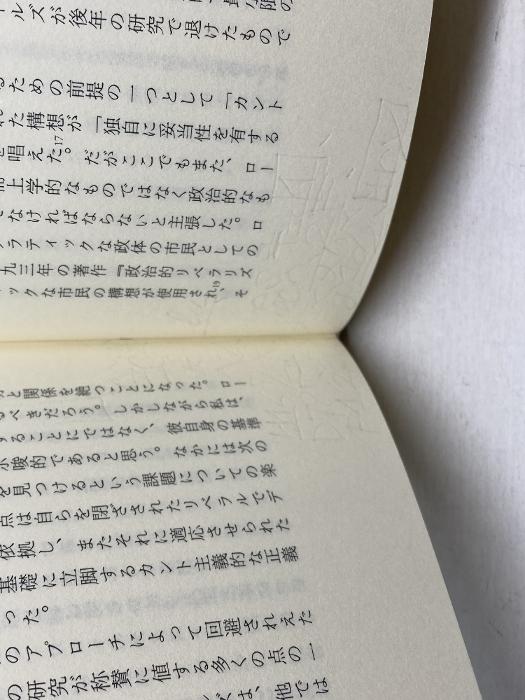 ルズが後年の研究で退けたもので
るための前提の一つとして「カント
れた構想が「独自に妥当性を有する
を唱えた。17だがここでもまた、ロー
而上学的なものではなく政治的なも
でなければならないと主張した。ロ
ラティックな政体の市民としての
九三年の著作『政治的リベラリズ
ックな市民の構想が使用され、19そ
と関係を絶つことになった。ロー
るべきだろう。しかしながら私は、
することにではなく、彼自身の基準
示唆的であると思う。なかには次の
を見つけるという課題についての楽
点は自らを閉ざされたリベラルでデ
依拠し、またそれに適応させられた
基礎に立脚するカント主義的な正義
った。
のアプローチによって回避されえた
の研究が称賛に値する多くの点の一
は、他では